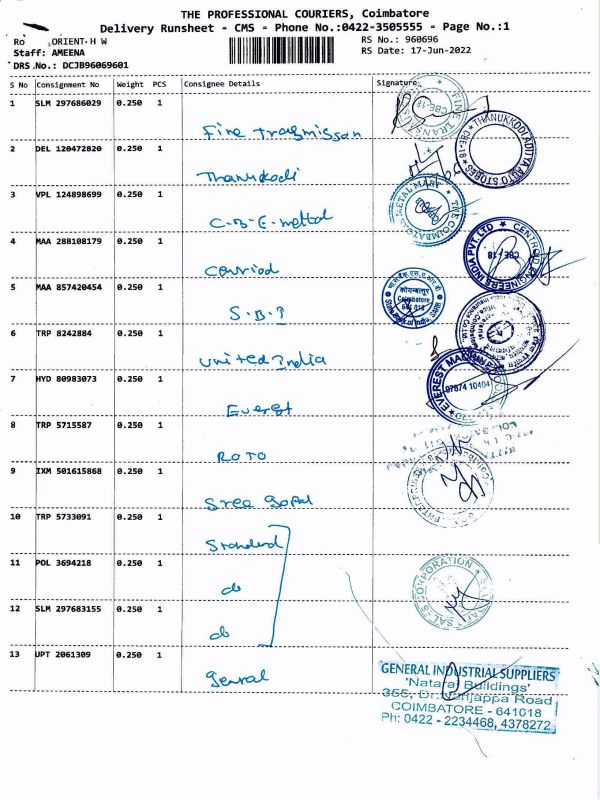 THE PROFESSIONAL COURIERS, Coimbatore
Delivery Runsheet - CMS - Phone No.:0422-3505555 - Page No.:1
ORIENT-H W
RS No.: 960696
Staff: AMEENA
RS Date: 17-Jun-2022
DRS No.: DCJB96069601
S No Consignment No Weight PCS Consignee Details Signature
1 SLM 297686029 0.250 1
2 DEL 120472820 0.250 1
Thanukodi
THANUKKODI ADITYA AUTO STORES
CBE-18
3 VPL 124898699 0.250 1
C-B-E-mettal
4 MAA 288108179 0.250 1
CENTROID ENGINEERS INDIA PVT. LTD
CBE-18
5 MAA 857420454 0.250 1
S.B.I
कोयम्बत्तूर
Coimbatore
641 018
State Bank of India
6 TRP 8242884 0.250 1
United India
7 HYD 80983073 0.250 1
Everest
97874 10404
8 TRP 5715587 0.250 1
ROTO
9 IXM 501615868 0.250 1
Sree Gopal
10 TRP 5733091 0.250 1
Standard
11 POL 3694218 0.250 1
do
12 SLM 297683155 0.250 1
do
13 UPT 2061309 0.250 1
GENERAL INDUSTRIAL SUPPLIERS
'Nataraj Buildings'
355, Dr. Nanjappa Road
COIMBATORE - 641018
Ph: 0422 - 2234468, 4378272